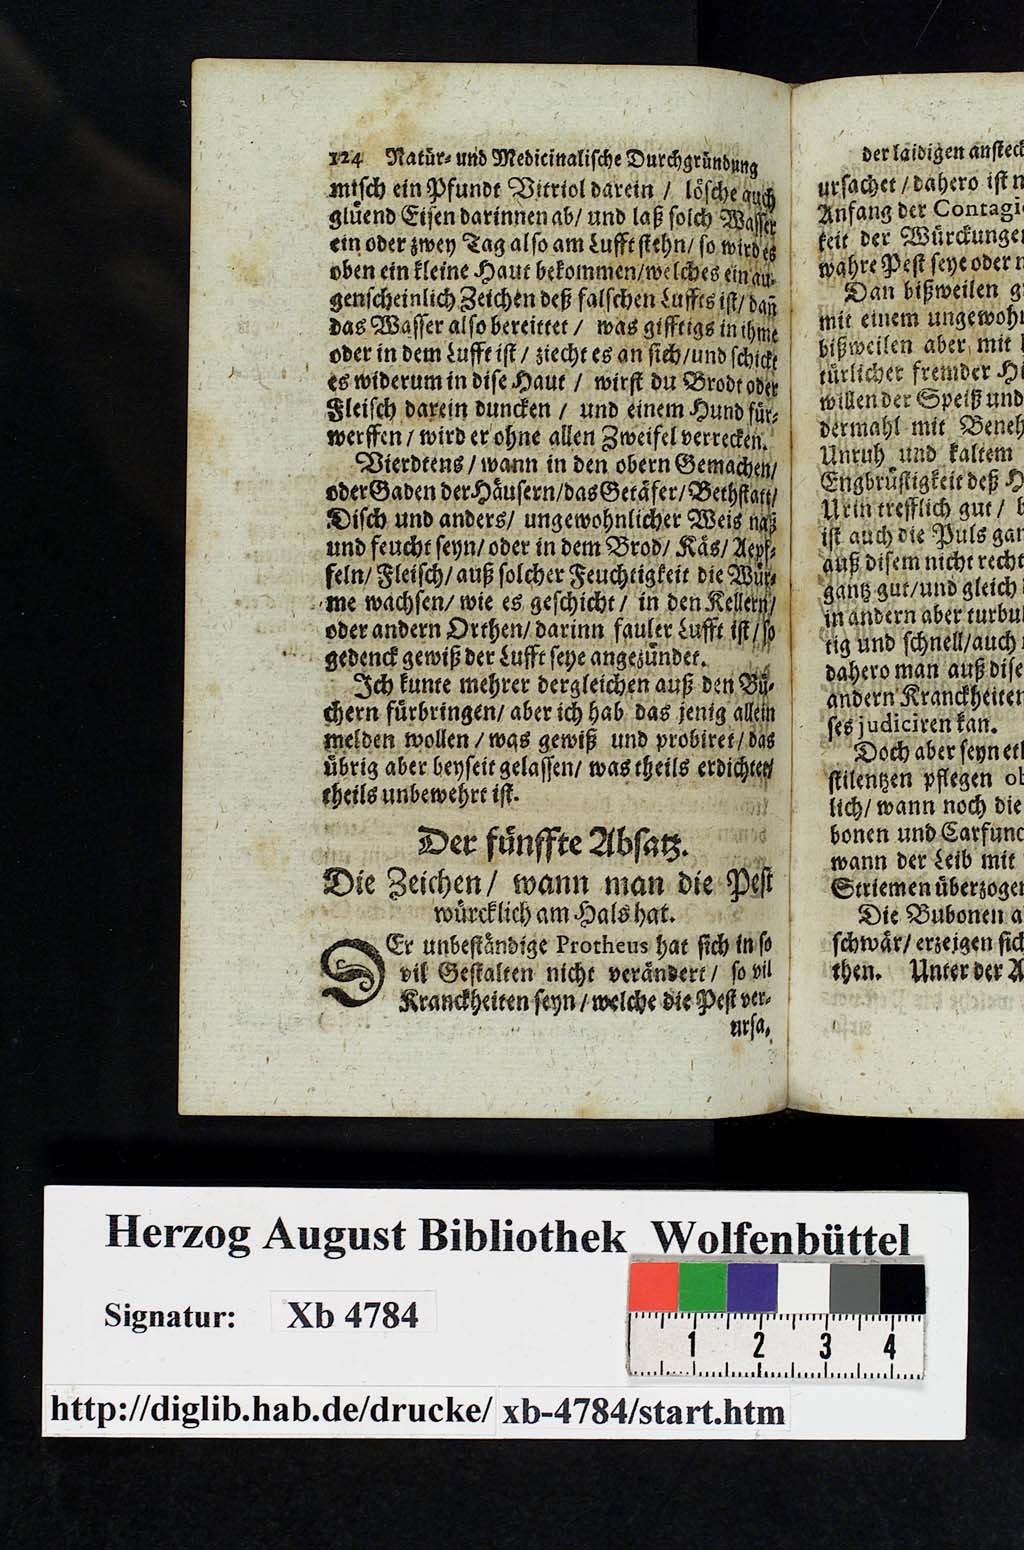 124 Natür- und Medicinalische Durchgründung
misch ein Pfundt Vitriol darein / lösche auch
glüend Eisen darinnen ab/ und laß solch Wasser
ein oder zwey Tag also am Lufft stehn/ so wird es
oben ein kleine Haut bekommen/welches ein au-
genscheinlich Zeichen deß falschen Luffts ist/ dañ
das Wasser also bereittet / was gifftigs in ihme
oder in dem Lufft ist / ziecht es an sich/und schickt
es widerum in dise Haut / wirst du Brodt oder
Fleisch darein duncken / und einem Hund für-
werffen / wird er ohne allen Zweifel verrecken.
Vierdtens / wann in den obern Gemachen/
oder Gaden der Häusern/das Getäfer/ Bethstatt/
Disch und anders/ ungewohnlicher Weis naß
und feucht seyn/ oder in dem Brod/ Käs/ Aepf-
feln/ Fleisch/ auß solcher Feuchtigkeit die Wür-
me wachsen/ wie es geschicht / in den Kellern/
oder andern Orthen/ darinn fauler Lufft ist/ so
gedenck gewiß der Lufft seye angezündet.
Ich kunte mehrer dergleichen auß den Bü-
chern fürbringen/ aber ich hab das jenig allein
melden wollen / was gewiß und probiret/ das
übrig aber beyseit gelassen/ was theils erdichtet/
theils unbewehrt ist.
Der fünffte Absatz.
Die Zeichen/ wann man die Pest
würcklich am Hals hat.
DEr unbeständige Protheus hat sich in so
vil Gestalten nicht verändert / so vil
Kranckheiten seyn / welche die Pest ver-
ursa-
der laidigen ansteck
ursachet / dahero ist
Anfang der Contagi
keit der Würckunge
wahre Pest seye oder
Dan bißweilen
mit einem ungewohn
bißweilen aber mit
türlicher fremder
willen der Speiß und
dermahl mit Beneh
Unruh und kaltem
Engbrüstigkeit deß
Urin trefflich gut /
ist auch die Puls gan
auß disem nicht recht
gantz gut/und gleich
in andern aber turbu
tig und schnell/auch
dahero man auß dise
andern Kranckheiten
ses judiciren kan.
Doch aber seyn etl
stilentzen pflegen ob
lich/ wann noch die
bonen und Carfunc
wann der Leib mit
Striemen überzogen
Die Bubonen
schwär/ erzeigen sich
then. Unter der A
Herzog August Bibliothek Wolfenbüttel
Signatur: Xb 4784
1 2 3 4
http://diglib.hab.de/drucke/ xb-4784/start.htm